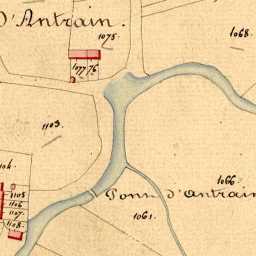 D'Antrain.
1075
1068.
1077 76
1103
1104
1105
1106
1107
1108
1066
d'Antrain
1061.